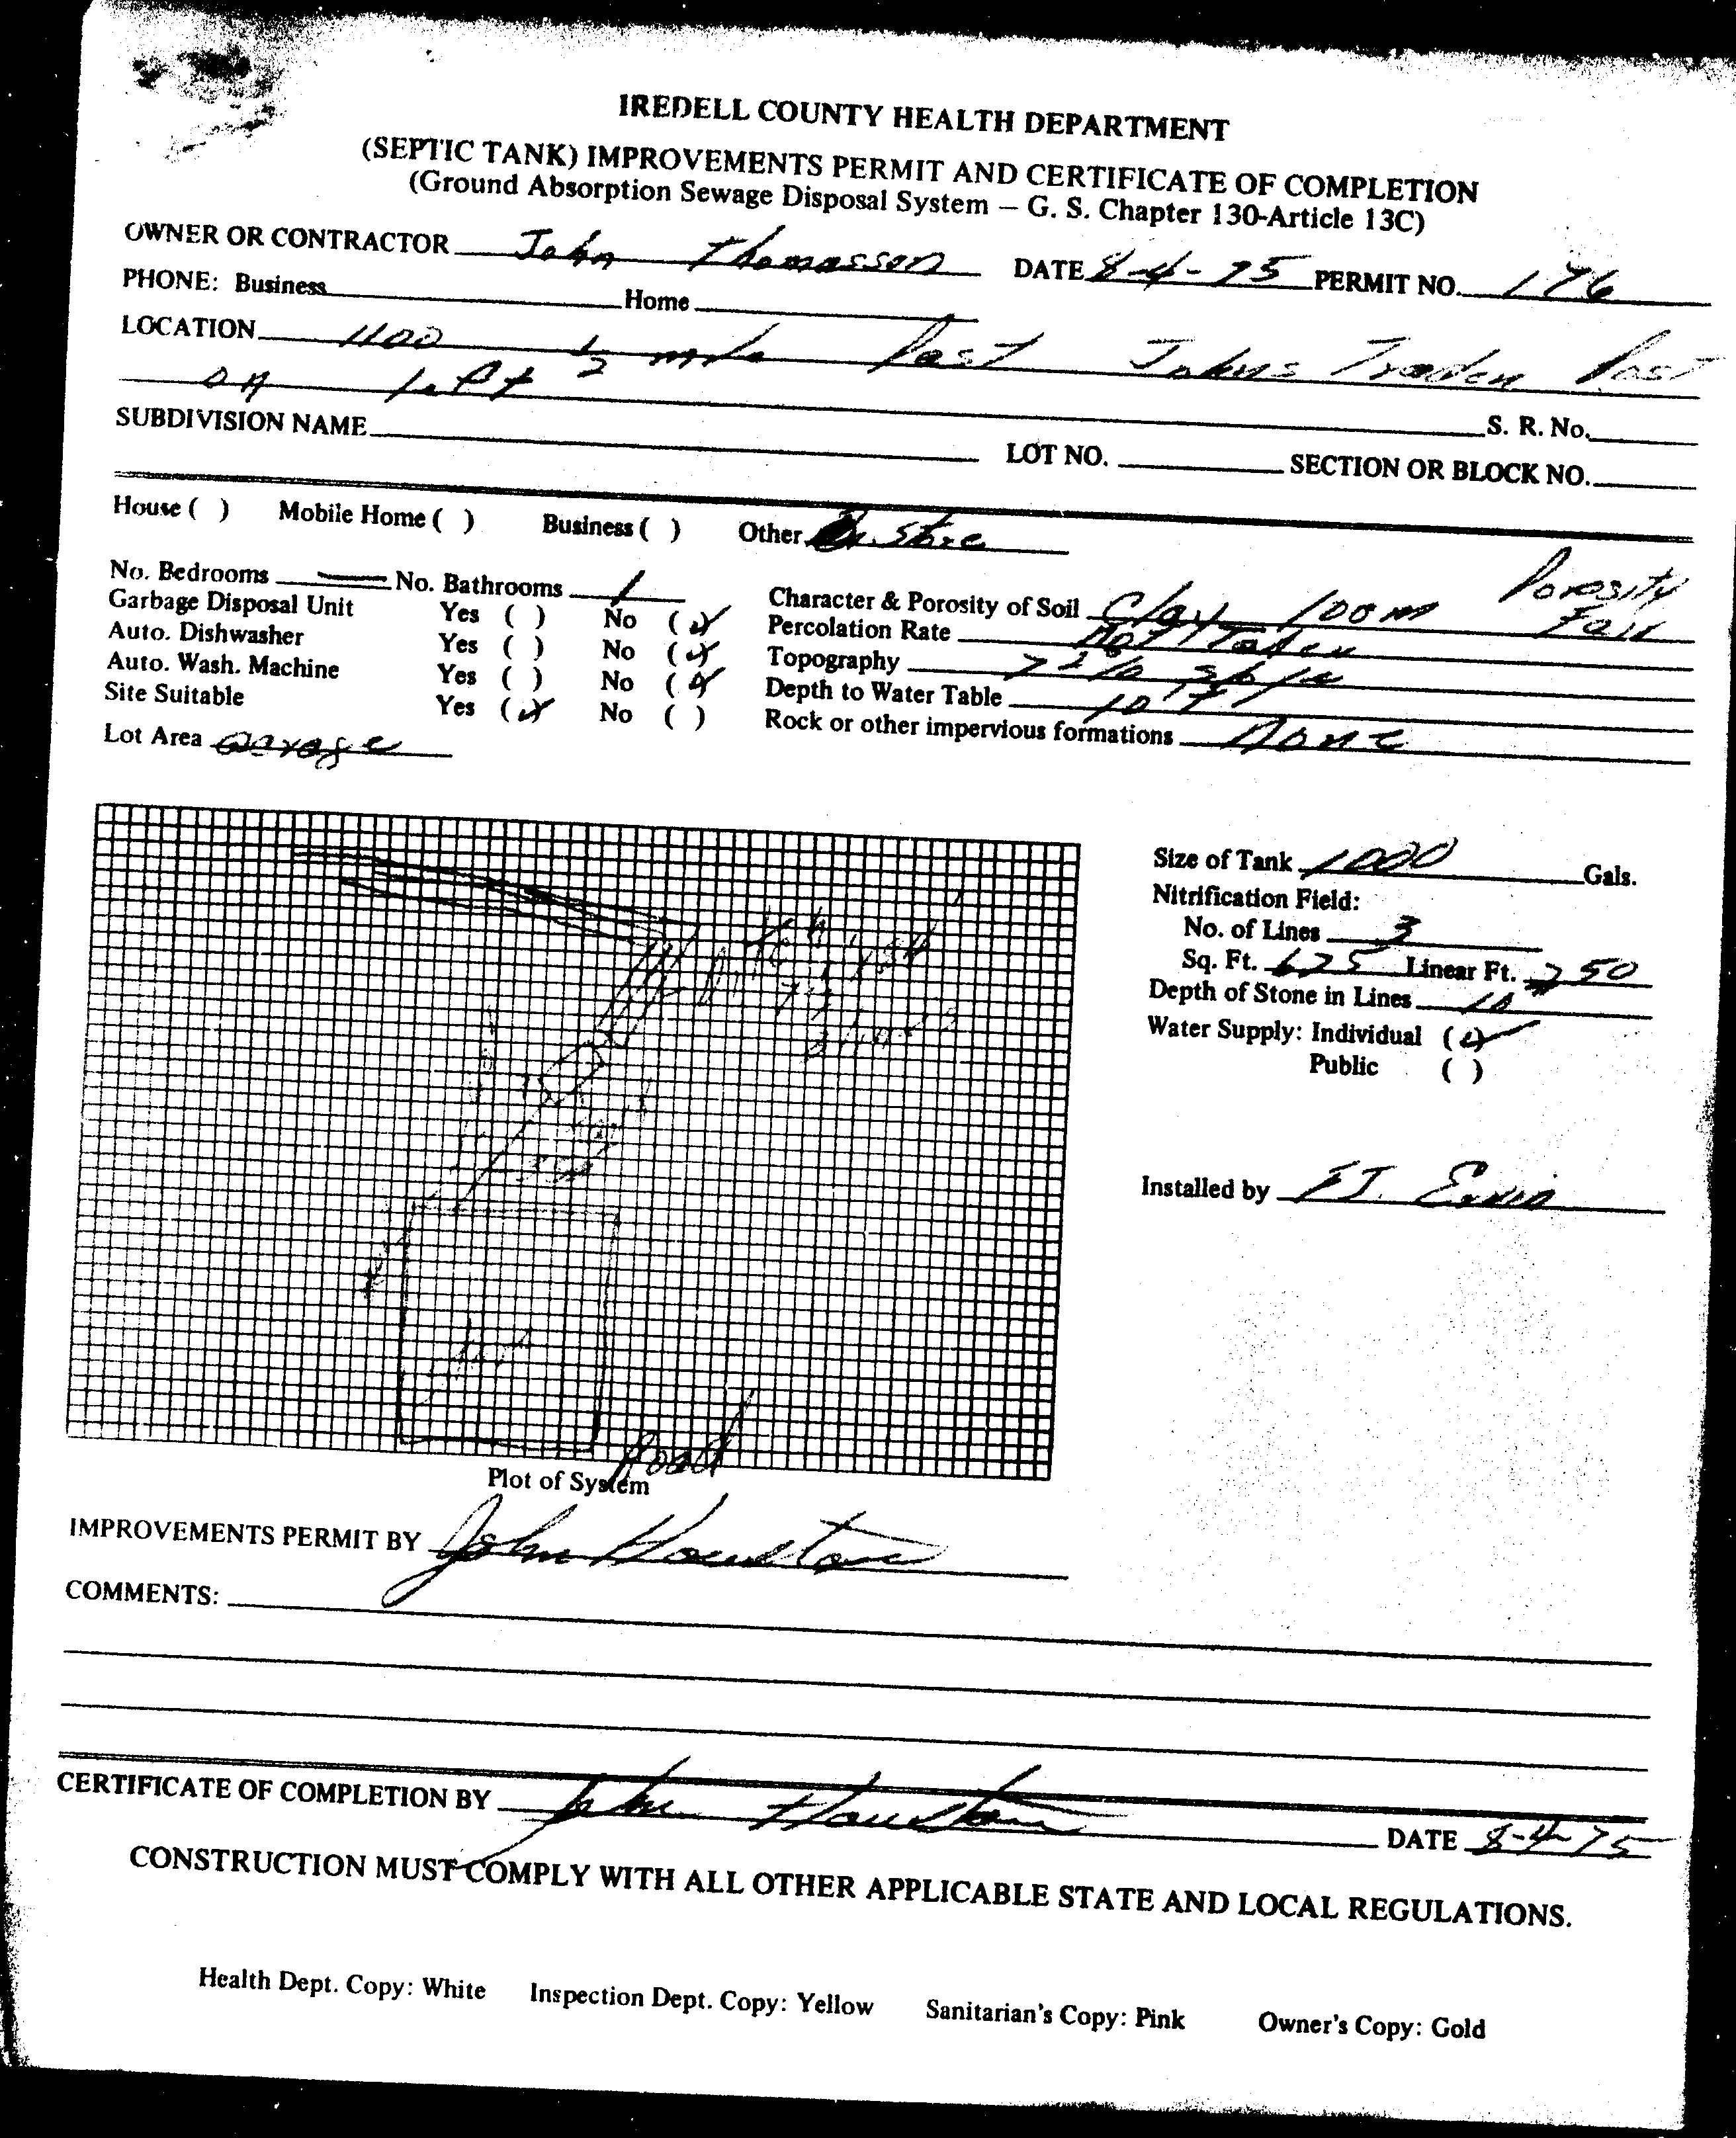 IREDELL COUNTY HEALTH DEPARTMENT
(SEPTIC TANK) IMPROVEMENTS PERMIT AND CERTIFICATE OF COMPLETION
(Ground Absorption Sewage Disposal System — G. S. Chapter 130-Article 13C)
OWNER OR CONTRACTOR John Thomasson DATE 8-4-75 PERMIT NO. 176
PHONE: Business Home
LOCATION 1100 1/2 mile Past Johns Traden Post
on left S. R. No.
SUBDIVISION NAME LOT NO. SECTION OR BLOCK NO.
House ( ) Mobile Home ( ) Business ( ) Other Store
No. Bedrooms — No. Bathrooms 1
Garbage Disposal Unit Yes ( ) No (✓)
Auto. Dishwasher Yes ( ) No (✓)
Auto. Wash. Machine Yes ( ) No (✓)
Site Suitable Yes (✓) No ( )
Lot Area
Character & Porosity of Soil Clay loom Porosity Fair
Percolation Rate Not Taken
Topography
Depth to Water Table 10 FT
Rock or other impervious formations None
Size of Tank 1000 Gals.
Nitrification Field:
No. of Lines 3
Sq. Ft. 625 Linear Ft. 250
Depth of Stone in Lines
Water Supply: Individual (✓)
Public ( )
Installed by F.J. Ervin
Road
Plot of System
IMPROVEMENTS PERMIT BY John Houston
COMMENTS:
CERTIFICATE OF COMPLETION BY John Houston DATE 8-4-75
CONSTRUCTION MUST COMPLY WITH ALL OTHER APPLICABLE STATE AND LOCAL REGULATIONS.
Health Dept. Copy: White Inspection Dept. Copy: Yellow Sanitarian's Copy: Pink Owner's Copy: Gold